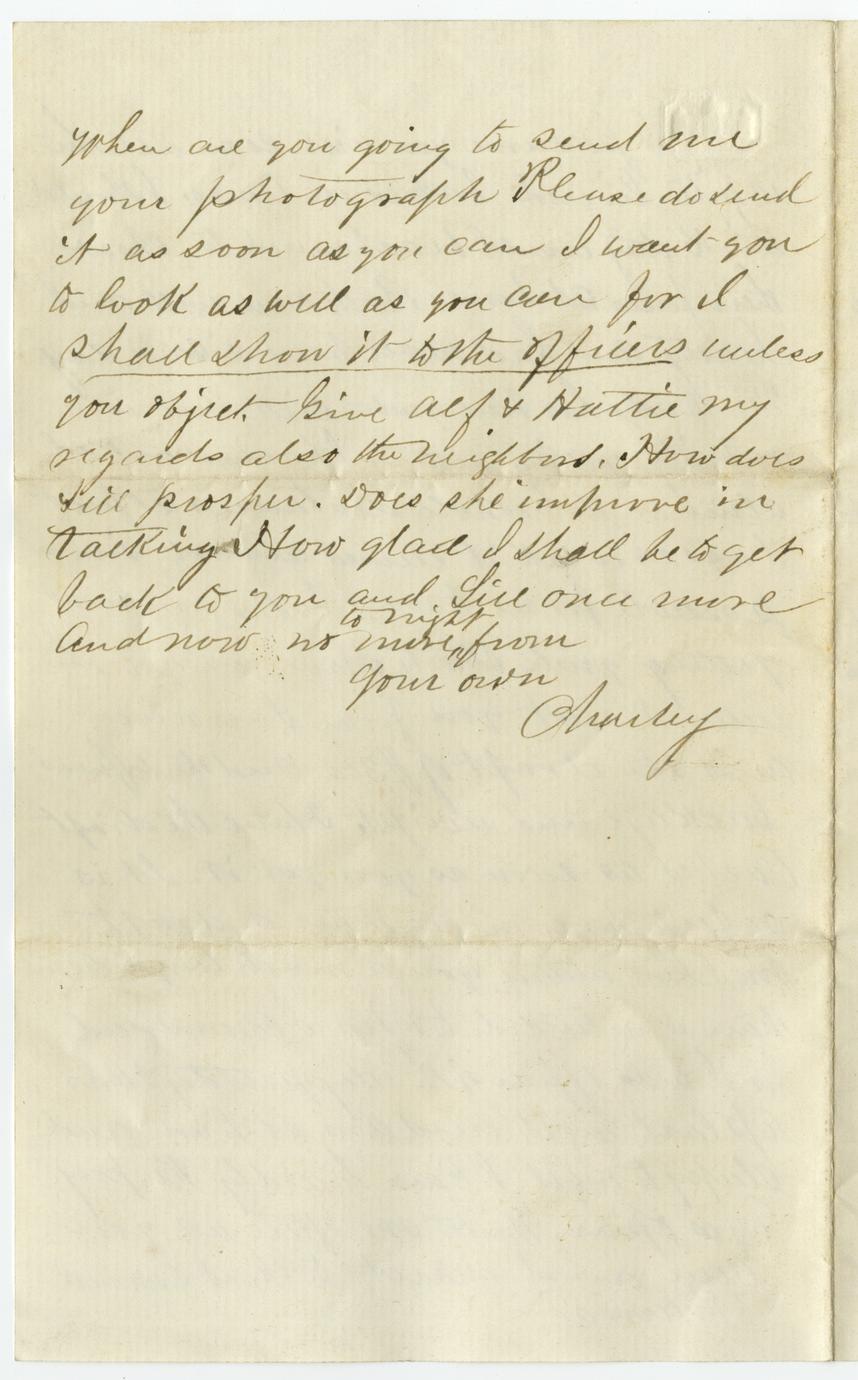 When are you going to send me
your photograph Please do send
it as soon as you can I want you
to look as well as you can for I
shall show it to the officers unless
you object. Give Alf & Hattie my
regards also the neighbors. How does
Lill prosper. Does she improve in
talking How glad I shall be to get
back to you and Lill once more
to night
And now no more from
your own
Charley